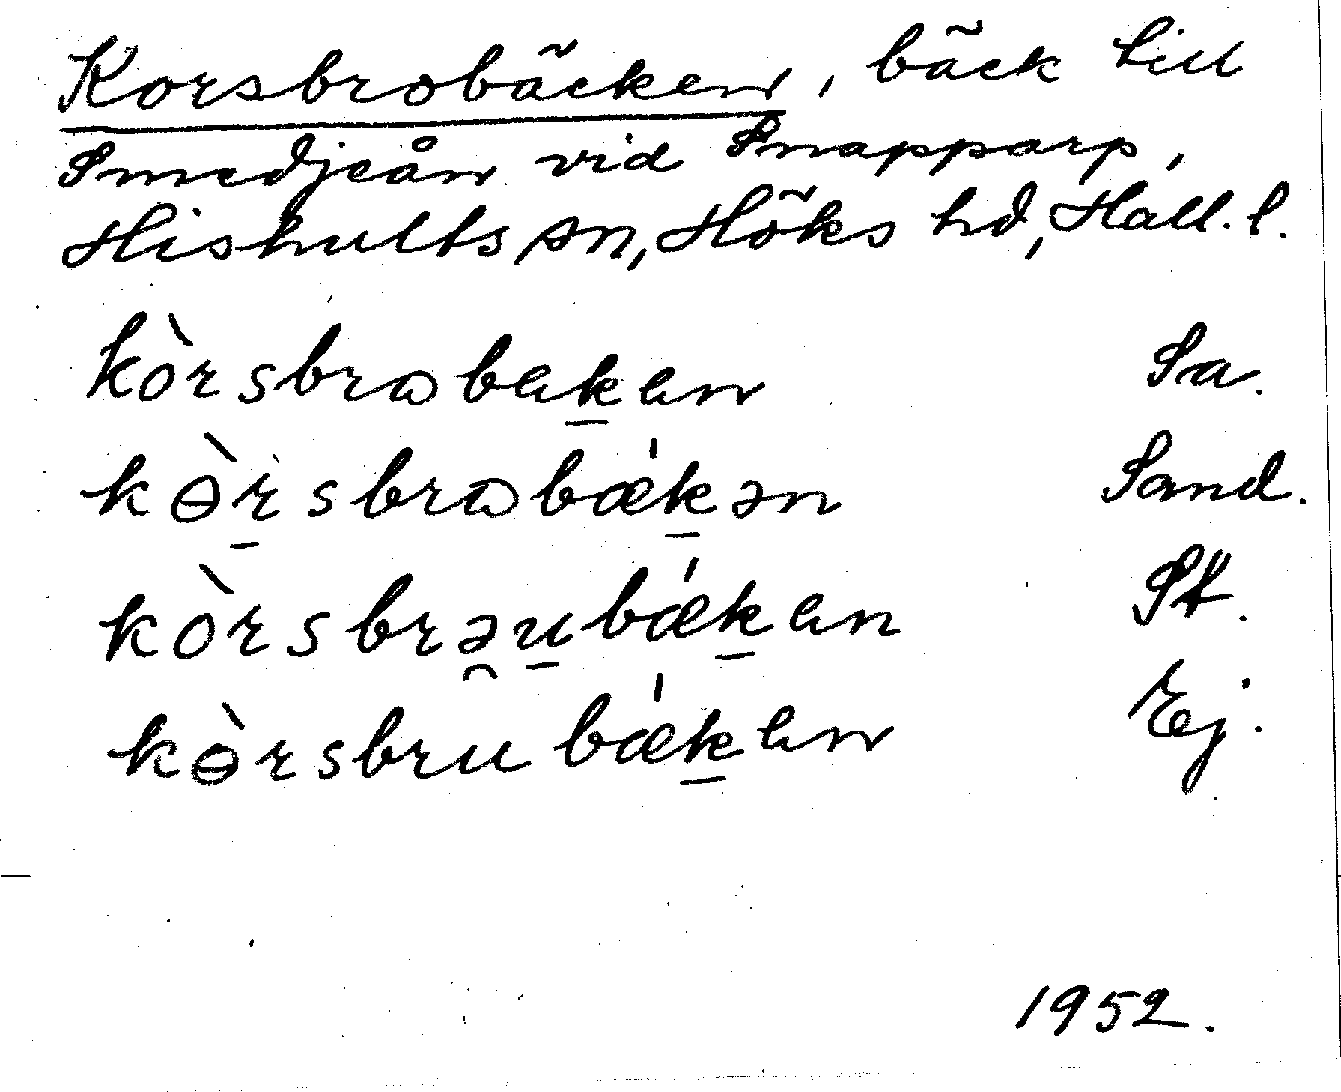 Korsbrobäcken, bäck till
Smedjeån vid Snapparp,
Hishults sn, Höks hd, Hall. l.
kòrsbrωbek̠en Sa.
kɵ̀r̠sbrωbǽk̠ən Sand.
kòrsbrə̯u̠bǽk̠en St.
kɵ̀rsbrubǽk̠en Ej.
1952.